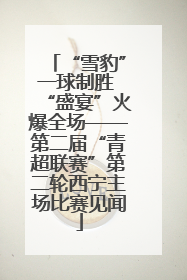 「“雪豹”
一球制胜
“盛宴”火
爆全场——
第二届“青
超联赛”第
二轮西宁主
场比赛见闻
」